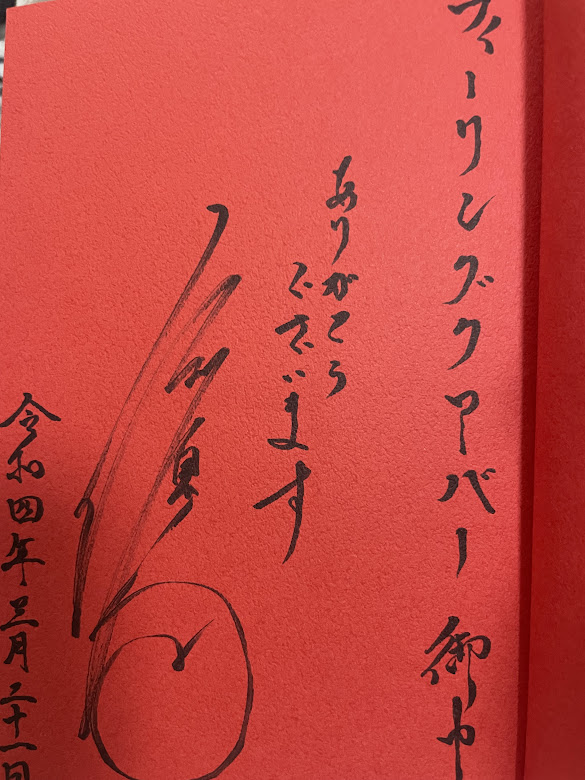 フィーリングクアーバー 御中
ありがとう
ございます
令和四年三月二十一日